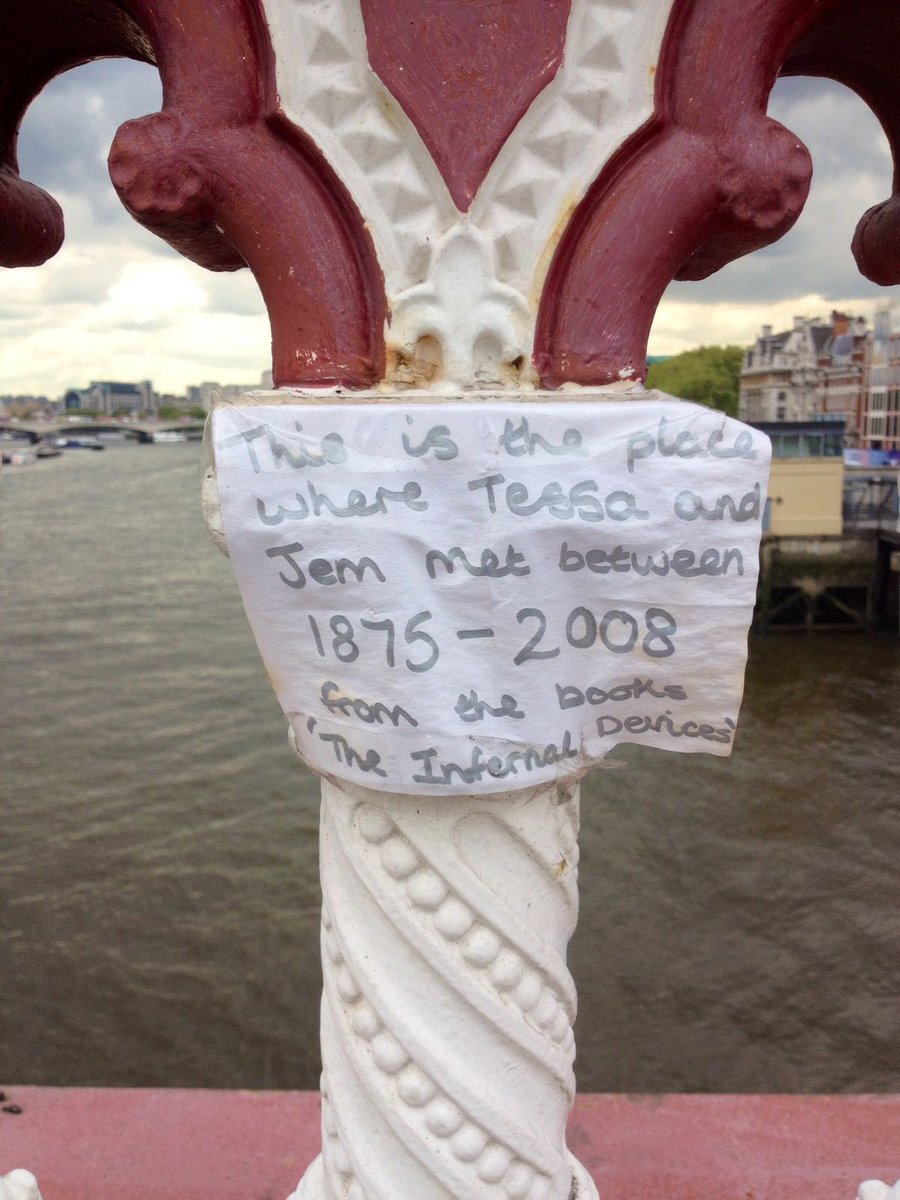 This is the place
where Tessa and
Jem met between
1875-2008
from the books
'The Infernal Devices'